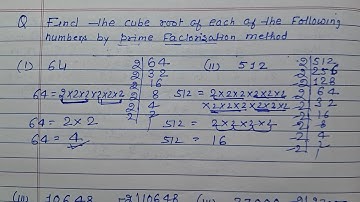 Q Find the cube root of each of the Following
numbers by prime Factorization method
(i) 64 2|64 (ii) 512 2|512
2|32 2|256
2|16 2|128
64=2×2×2×2×2×2 2|8 512 = 2×2×2×2×2×2 2|64
2|4 ×2×2×2×2×2×2 2|32
64= 2×2 2|2 2|16
512= 2×2×2×2 2|8
64 = 4 512 = 16 2|4
(iii) 10648 2|10648